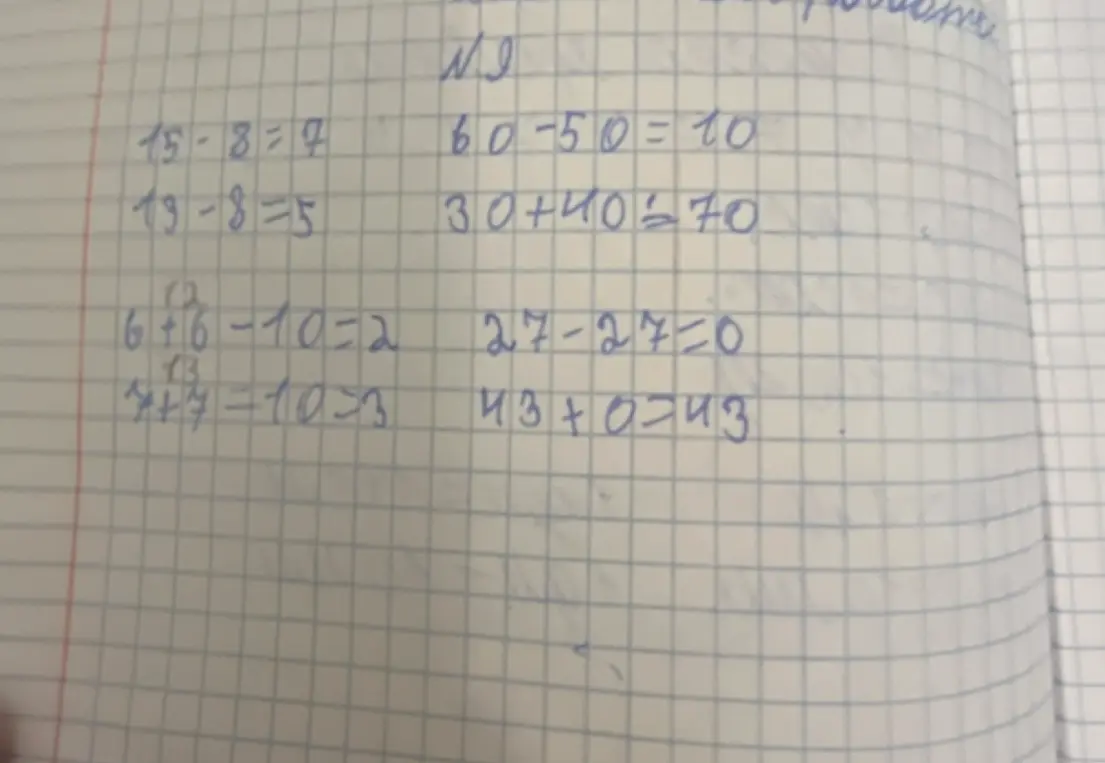 N 9
15 - 8 = 7 60 - 50 = 10
13 - 8 = 5 30 + 40 = 70
12
6 + 6 - 10 = 2 27 - 27 = 0
13
7 + 7 - 10 = 3 43 + 0 = 43